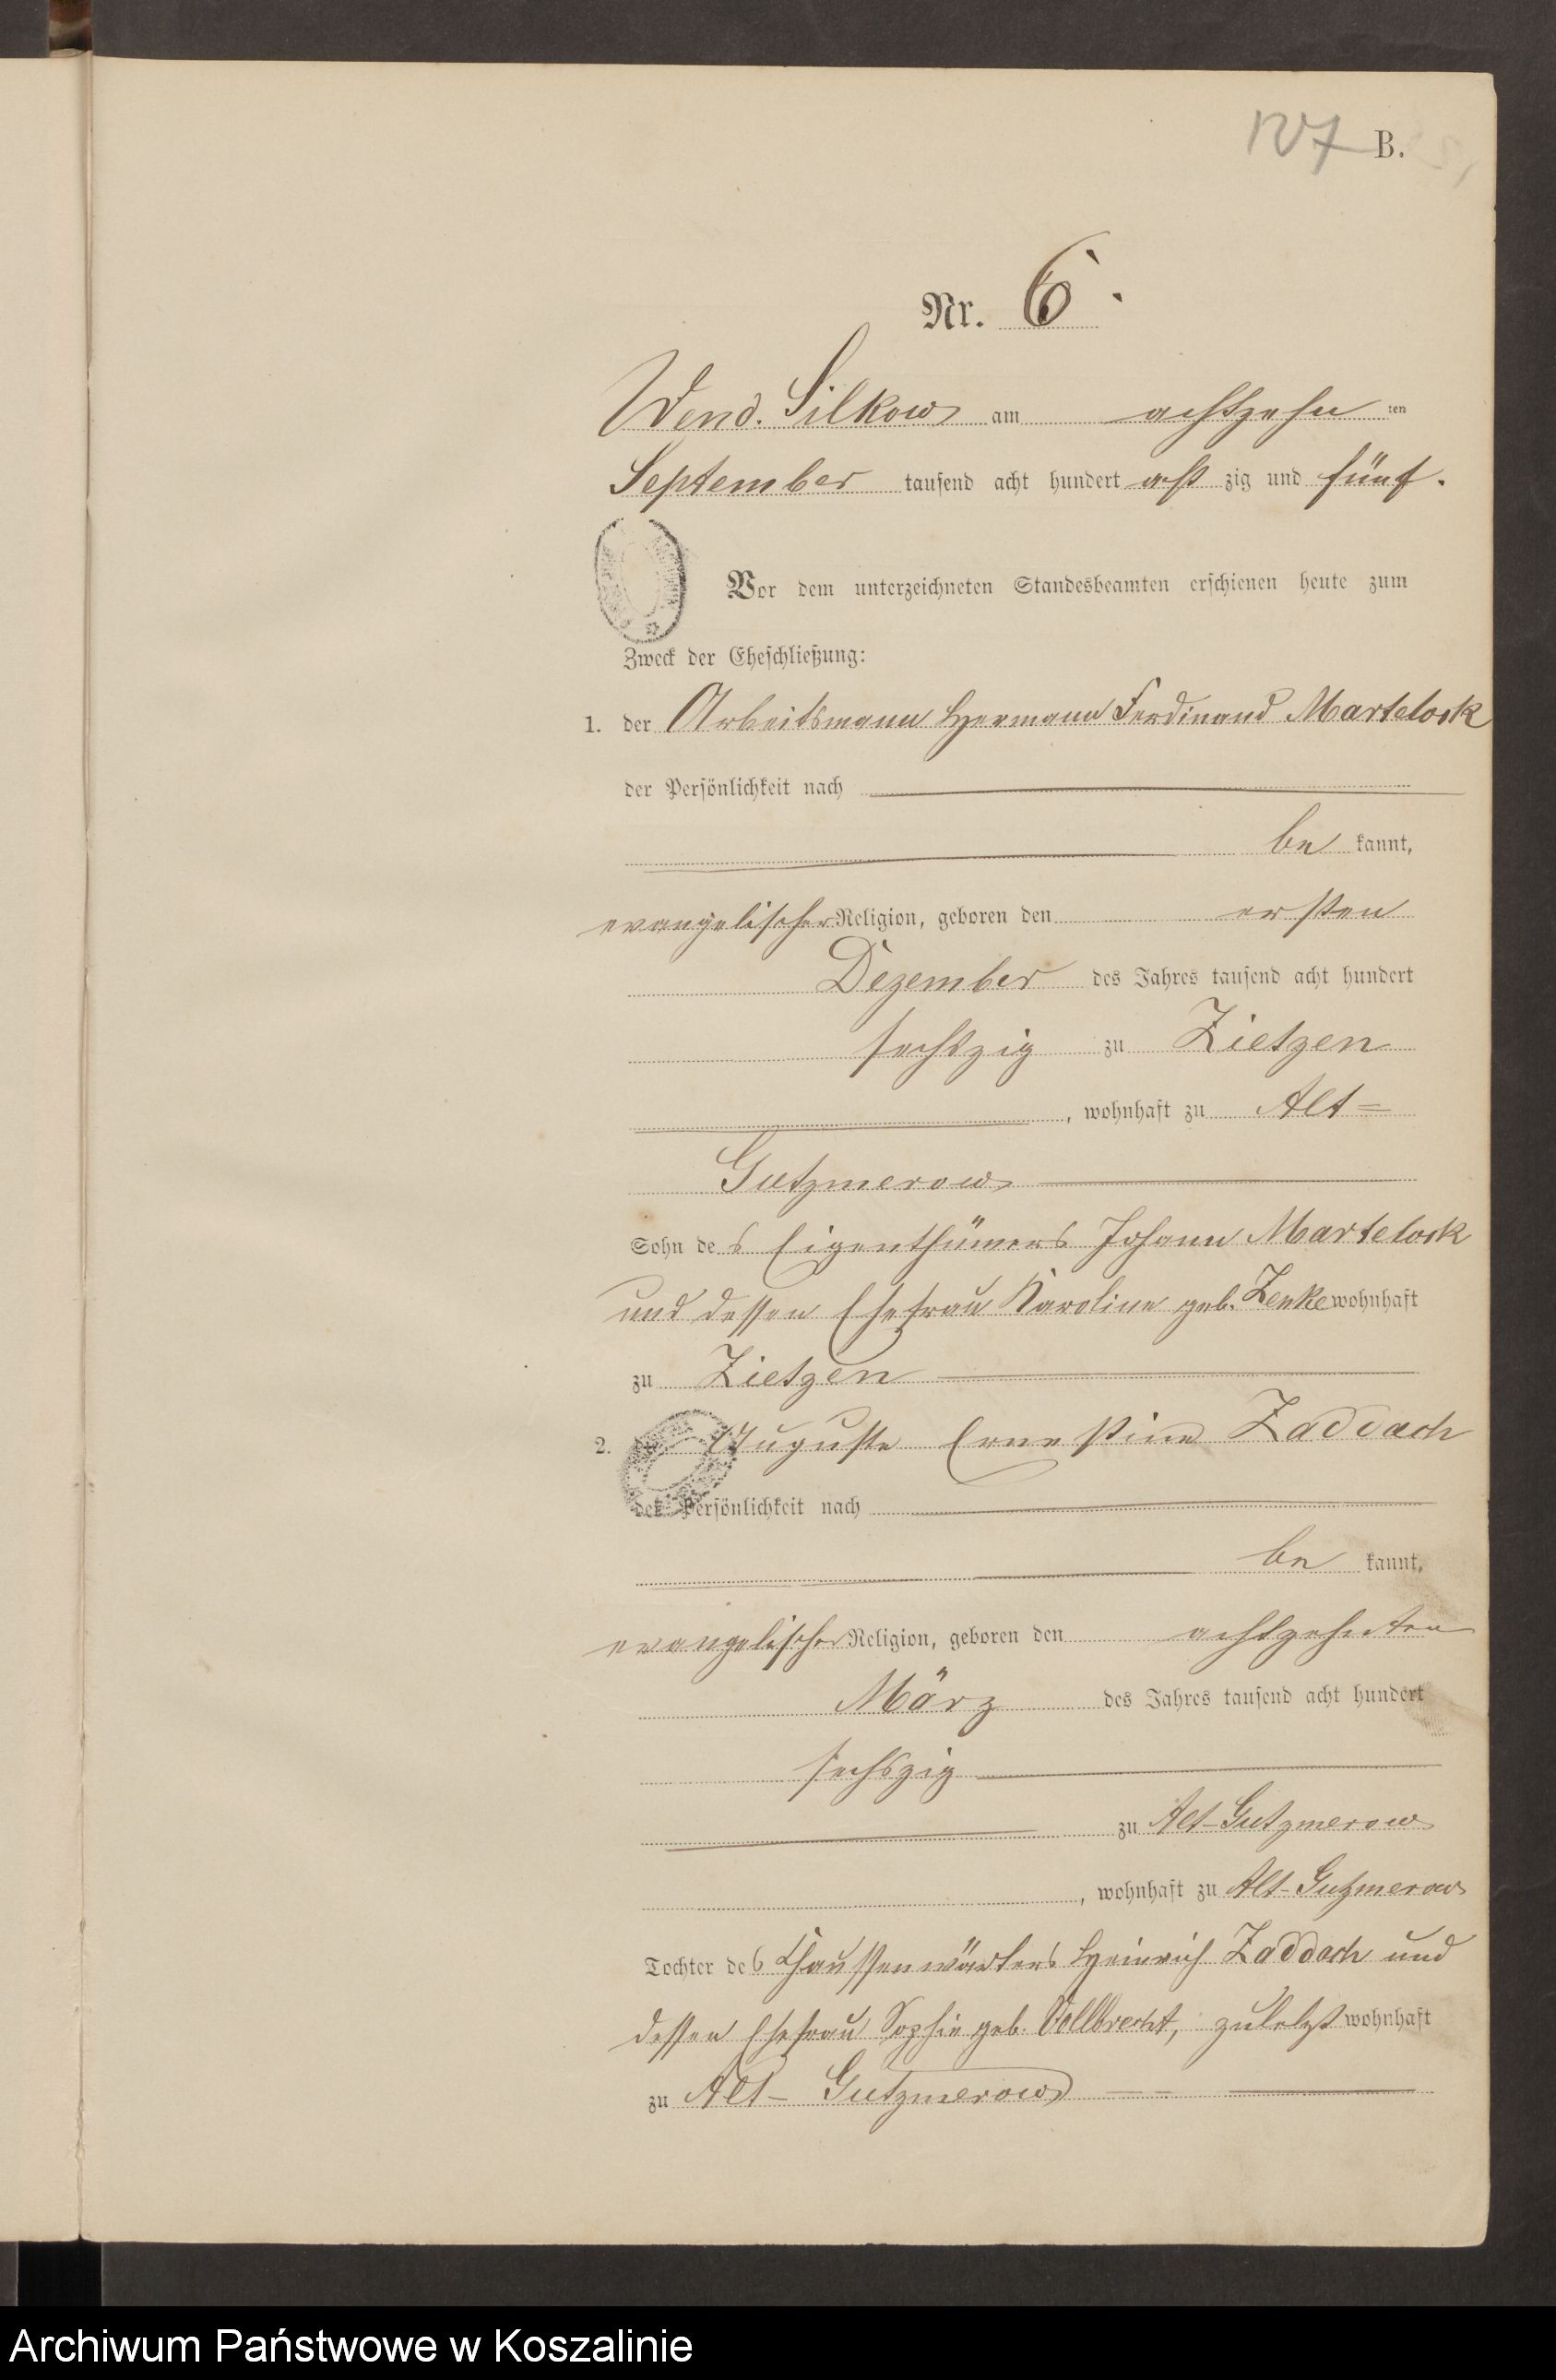 127 B.
Nr. 6.
Wend. Silkow am achtzehn ten
September tausend acht hundert acht zig und fünf.
Vor dem unterzeichneten Standesbeamten erschienen heute zum
Zweck der Eheschließung:
1. der Arbeitsmann Hermann Ferdinand Martelock
der Persönlichkeit nach
be kannt,
evangelischer Religion, geboren den ersten
Dezember des Jahres tausend acht hundert
sechszig zu Zietzen
, wohnhaft zu Alt=
Gutzmerow
Sohn des Eigenthümers Johann Martelock
und dessen Ehefrau Karoline geb. Zenke wohnhaft
zu Zietzen
2. die Auguste Ernestine Zaddach
der Persönlichkeit nach
be kannt,
evangelischer Religion, geboren den achtzehnten
März des Jahres tausend acht hundert
sechszig
zu Alt-Gutzmerow
, wohnhaft zu Alt-Gutzmerow
Tochter des Chausseewärters Heinrich Zaddach und
dessen Ehefrau Sophie geb. Vollbrecht, zuletzt wohnhaft
zu Alt-Gutzmerow
Archiwum Państwowe w Koszalinie